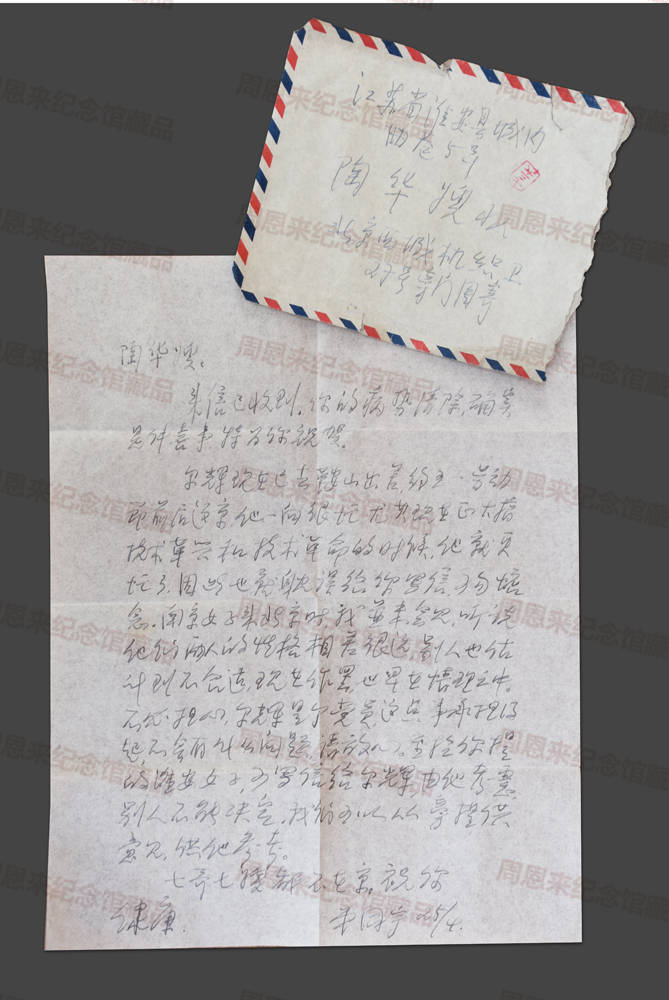 江苏省淮安县城内
陶华
北京西城机织卫
27号
陶华
来信已收到，你的病势清除，确实
是件喜事，特为你祝贺。
尔辉现在已去鞍山出差，约五一劳动
节前后返京，他一向很忙，尤其现在正大搞
技术革新和技术革命的时候，他就更
忙了，因此也就耽误给你写信，不勿惦
念。南京女子来北京时，我并未会见，听说
他们两人的性格相差很远，别人也估
计到不合适，现在作罢，也早在情理之中。
不必担心，尔辉是个党员，这点事承担得
起，不会有什么问题，请放心，至于你提
的淮安女子，可写信给尔辉由他考虑，
别人不能决定，我们可以从旁提供
意见，供他参考。
七哥七嫂都不在京，祝你
健康
25/4.
周恩来纪念馆藏品